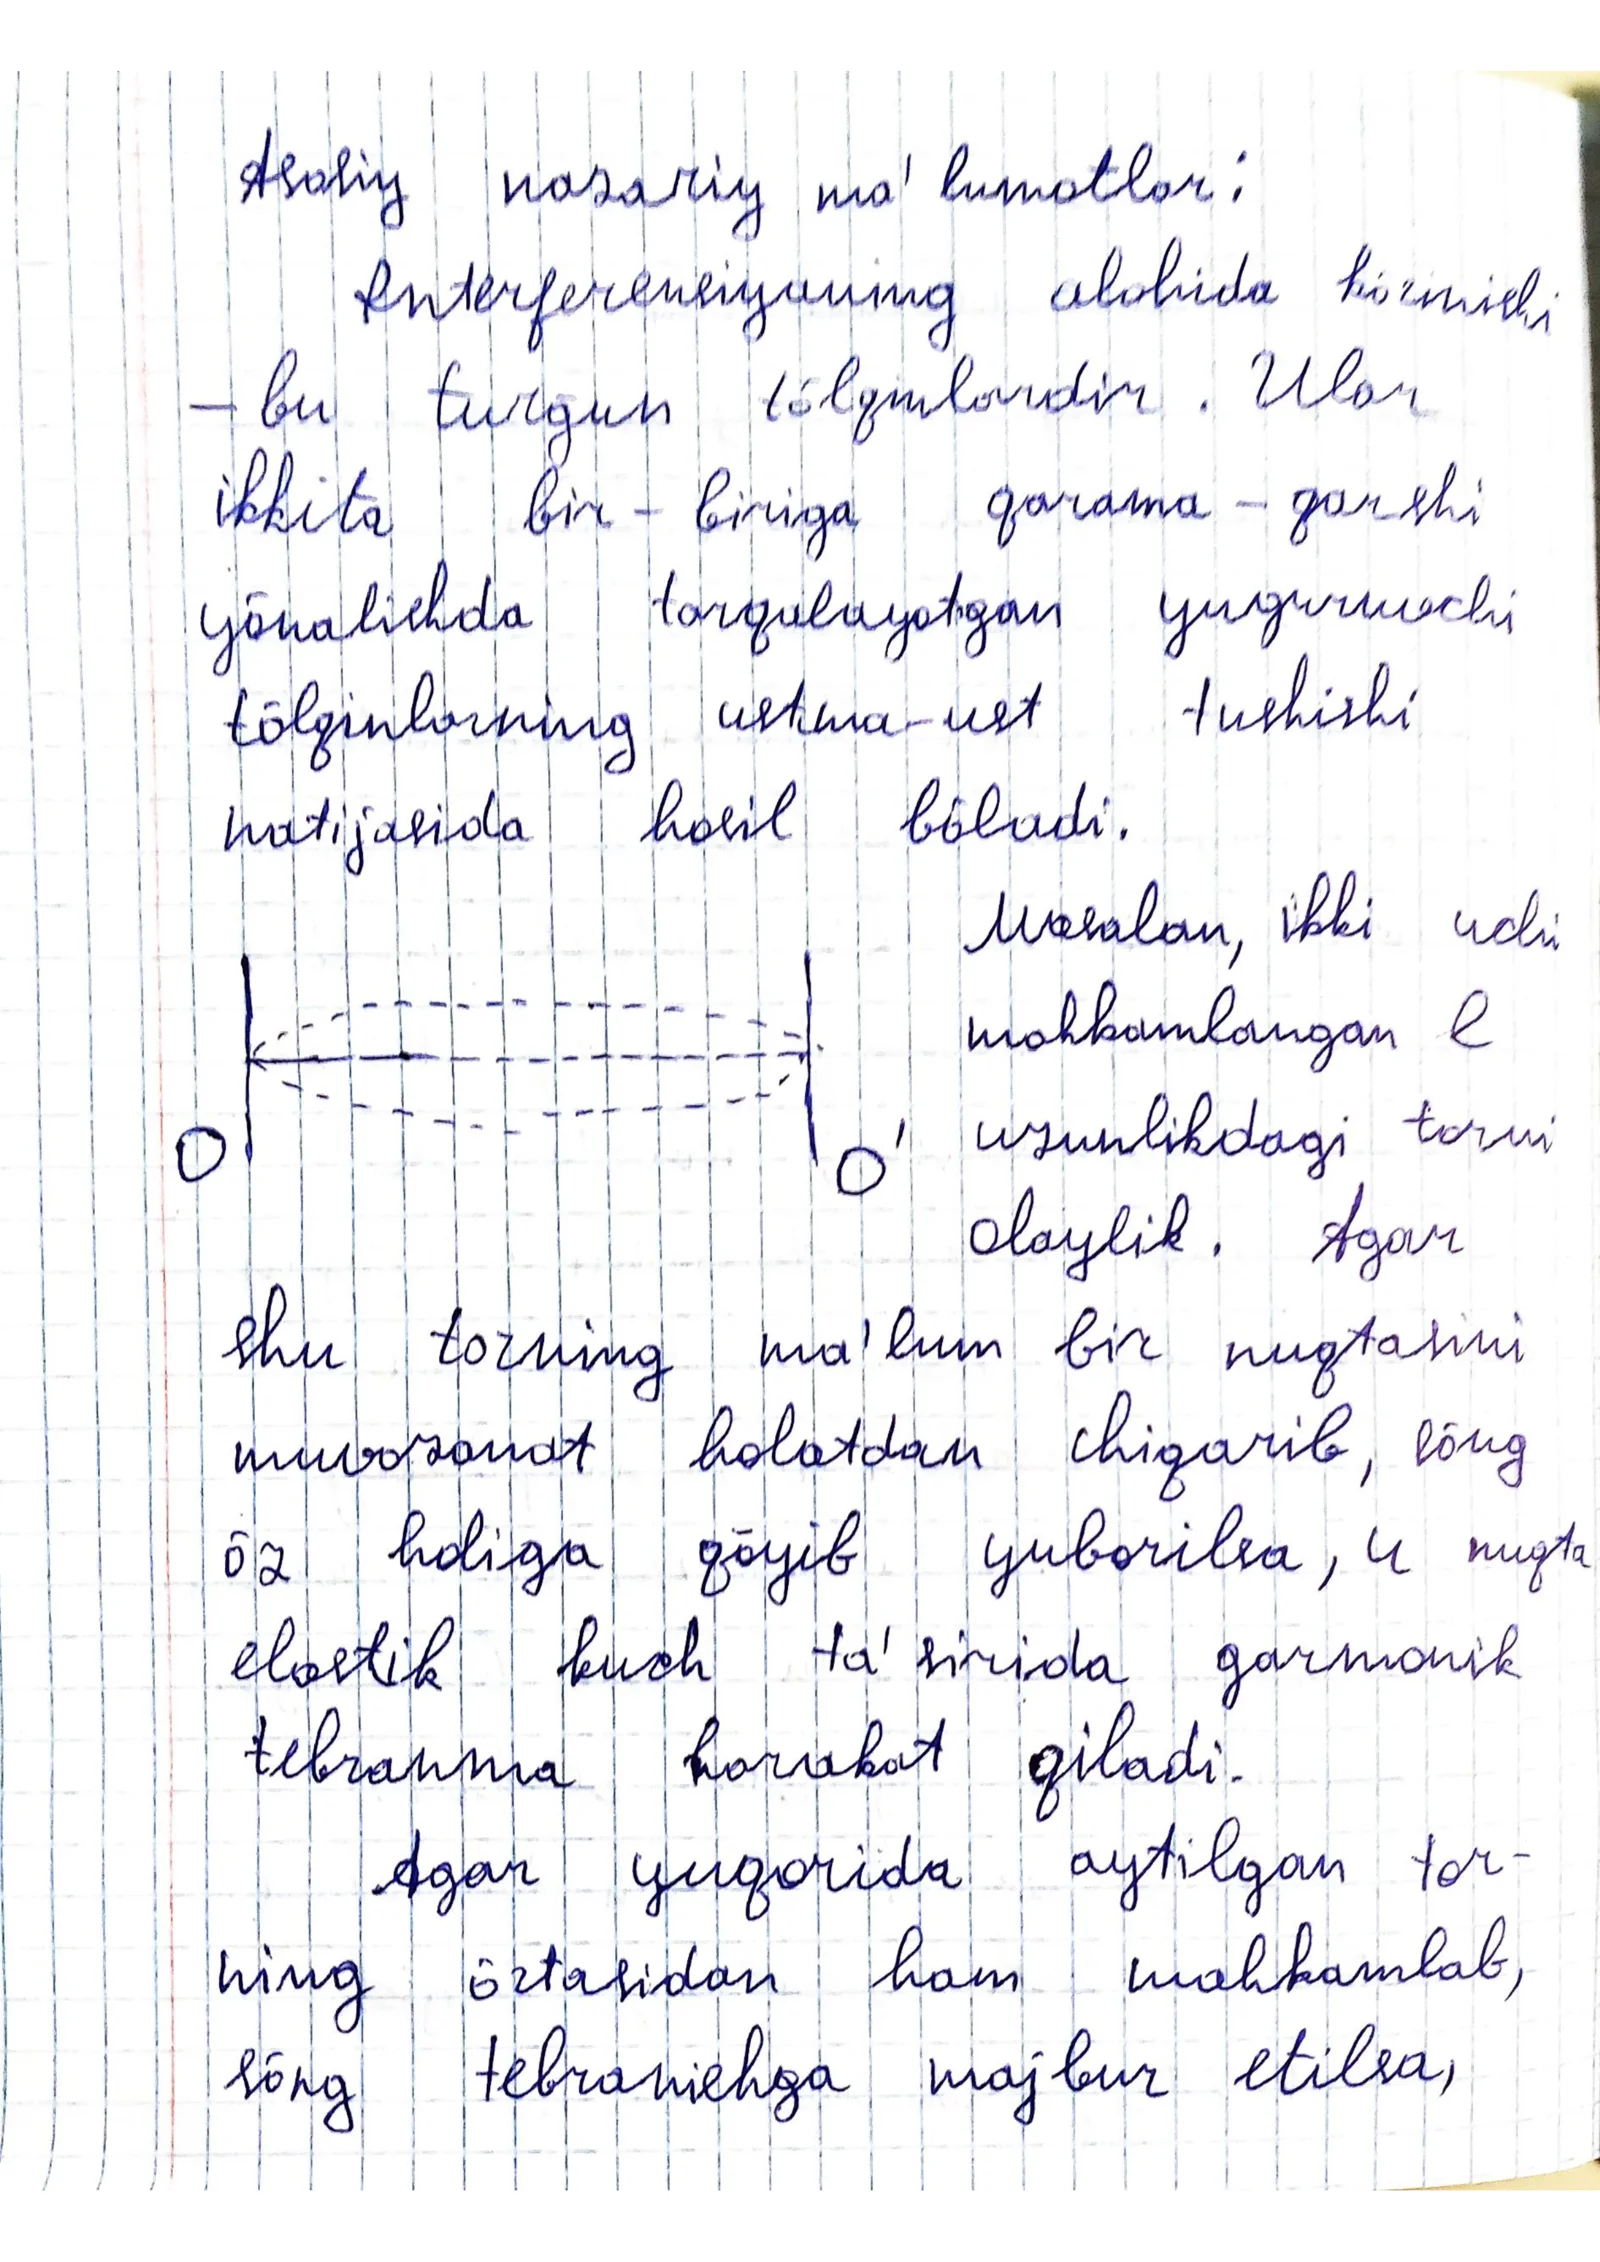 Asosiy nazariy ma'lumotlar:
Interferensiyaning alohida kōrinishi
– bu turģun tōlqinlardir. Ular
ikkita bir-biriga qarama-qarshi
yōnalishda tarqalayotgan yuguruvchi
tōlqinlarning ustma-ust tushishi
natijasida hosil bōladi.
Masalan, ikki uchi
mahkamlangan l
uzunlikdagi torni
O O'
olaylik. Agar
shu torning ma'lum bir nuqtasini
muvozanat holatdan chiqarib, sōng
ōz holiga qōyib yuborilsa, u nuqta
elastik kuch ta'sirida garmonik
tebranma harakat qiladi.
Agar yuqorida aytilgan tor-
ning ōrtasidan ham mahkamlab,
sōng tebranishga majbur etilsa,